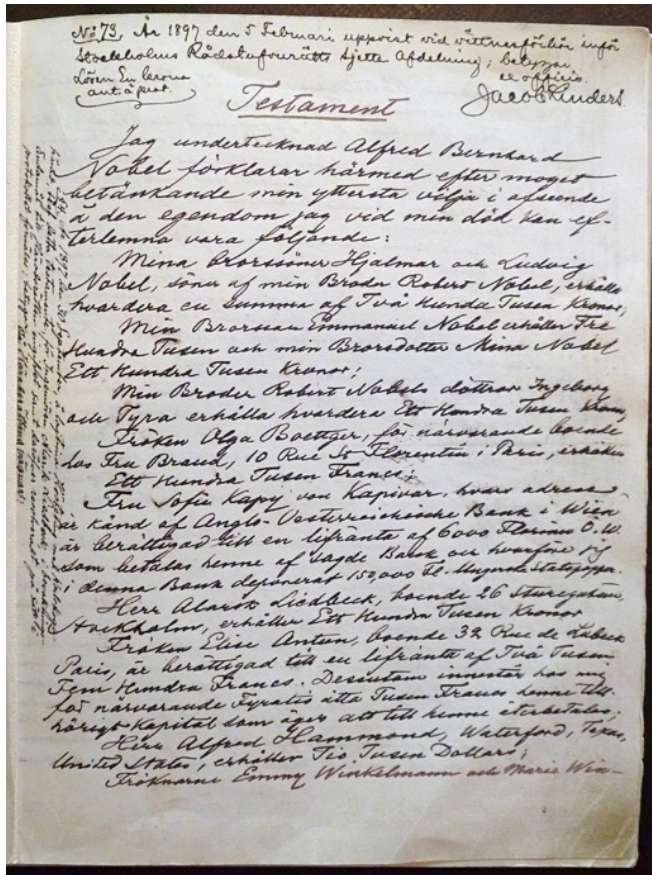 No 73. År 1897 den 5 Februari uppvist vid vittnesförhör inför
Stockholms Rådstufvurätts sjette Afdelning; betygar
ex officio.
Testament
Jag undertecknad Alfred Bernhard
Nobel förklarar härmed efter moget
betänkande min yttersta vilja i afseende
å den egendom jag vid min död kan ef-
terlemna vara följande:
Mina Brorssöner Hjalmar och Ludvig
Nobel, söner af min Broder Robert Nobel, erhålla
hvardera en summa af Två Hundra Tusen Kronor;
Min Brorsson Emmanuel Nobel erhåller Tre
Hundra Tusen och min Brorsdotter Mina Nobel
Ett Hundra Tusen Kronor;
Min Broder Robert Nobels döttrar Ingeborg
och Tyra erhålla hvardera Ett Hundra Tusen Kronor;
Fröken Olga Boettger, för närvarande boende
hos Fru Brand, 10 Rue St Florentin i Paris, erhåller
Ett Hundra Tusen Francs;
Fru Sofie Kapy von Kapivar, hvars adress
är känd af Anglo-Oesterreichische Bank i Wien
är berättigad till en lifränta af 6000 Florins Ö.W.
som betalas henne af sagde Bank och hvarföre jag
i denna Bank deponerat 150,000 Fl. i Ungerska Statspapper.
Herr Alarik Liedbeck, boende 26 Sturegatan,
Stockholm, erhåller Ett Hundra Tusen Kronor
Fröken Elise Antun, boende 32 Rue de Lubeck
Paris, är berättigad till en lifränta af Två Tusen
Fem Hundra Francs. Desutom innestår hos mig
för närvarande Fyratio åtta Tusen Francs henne till-
hörigt Kapital som äger att till henne återbetalas;
Herr Alfred Hammond, Waterford, Texas,
United States, erhåller Tio Tusen Dollars;
Fröknarne Emmy Winkelmann och Marie Win-